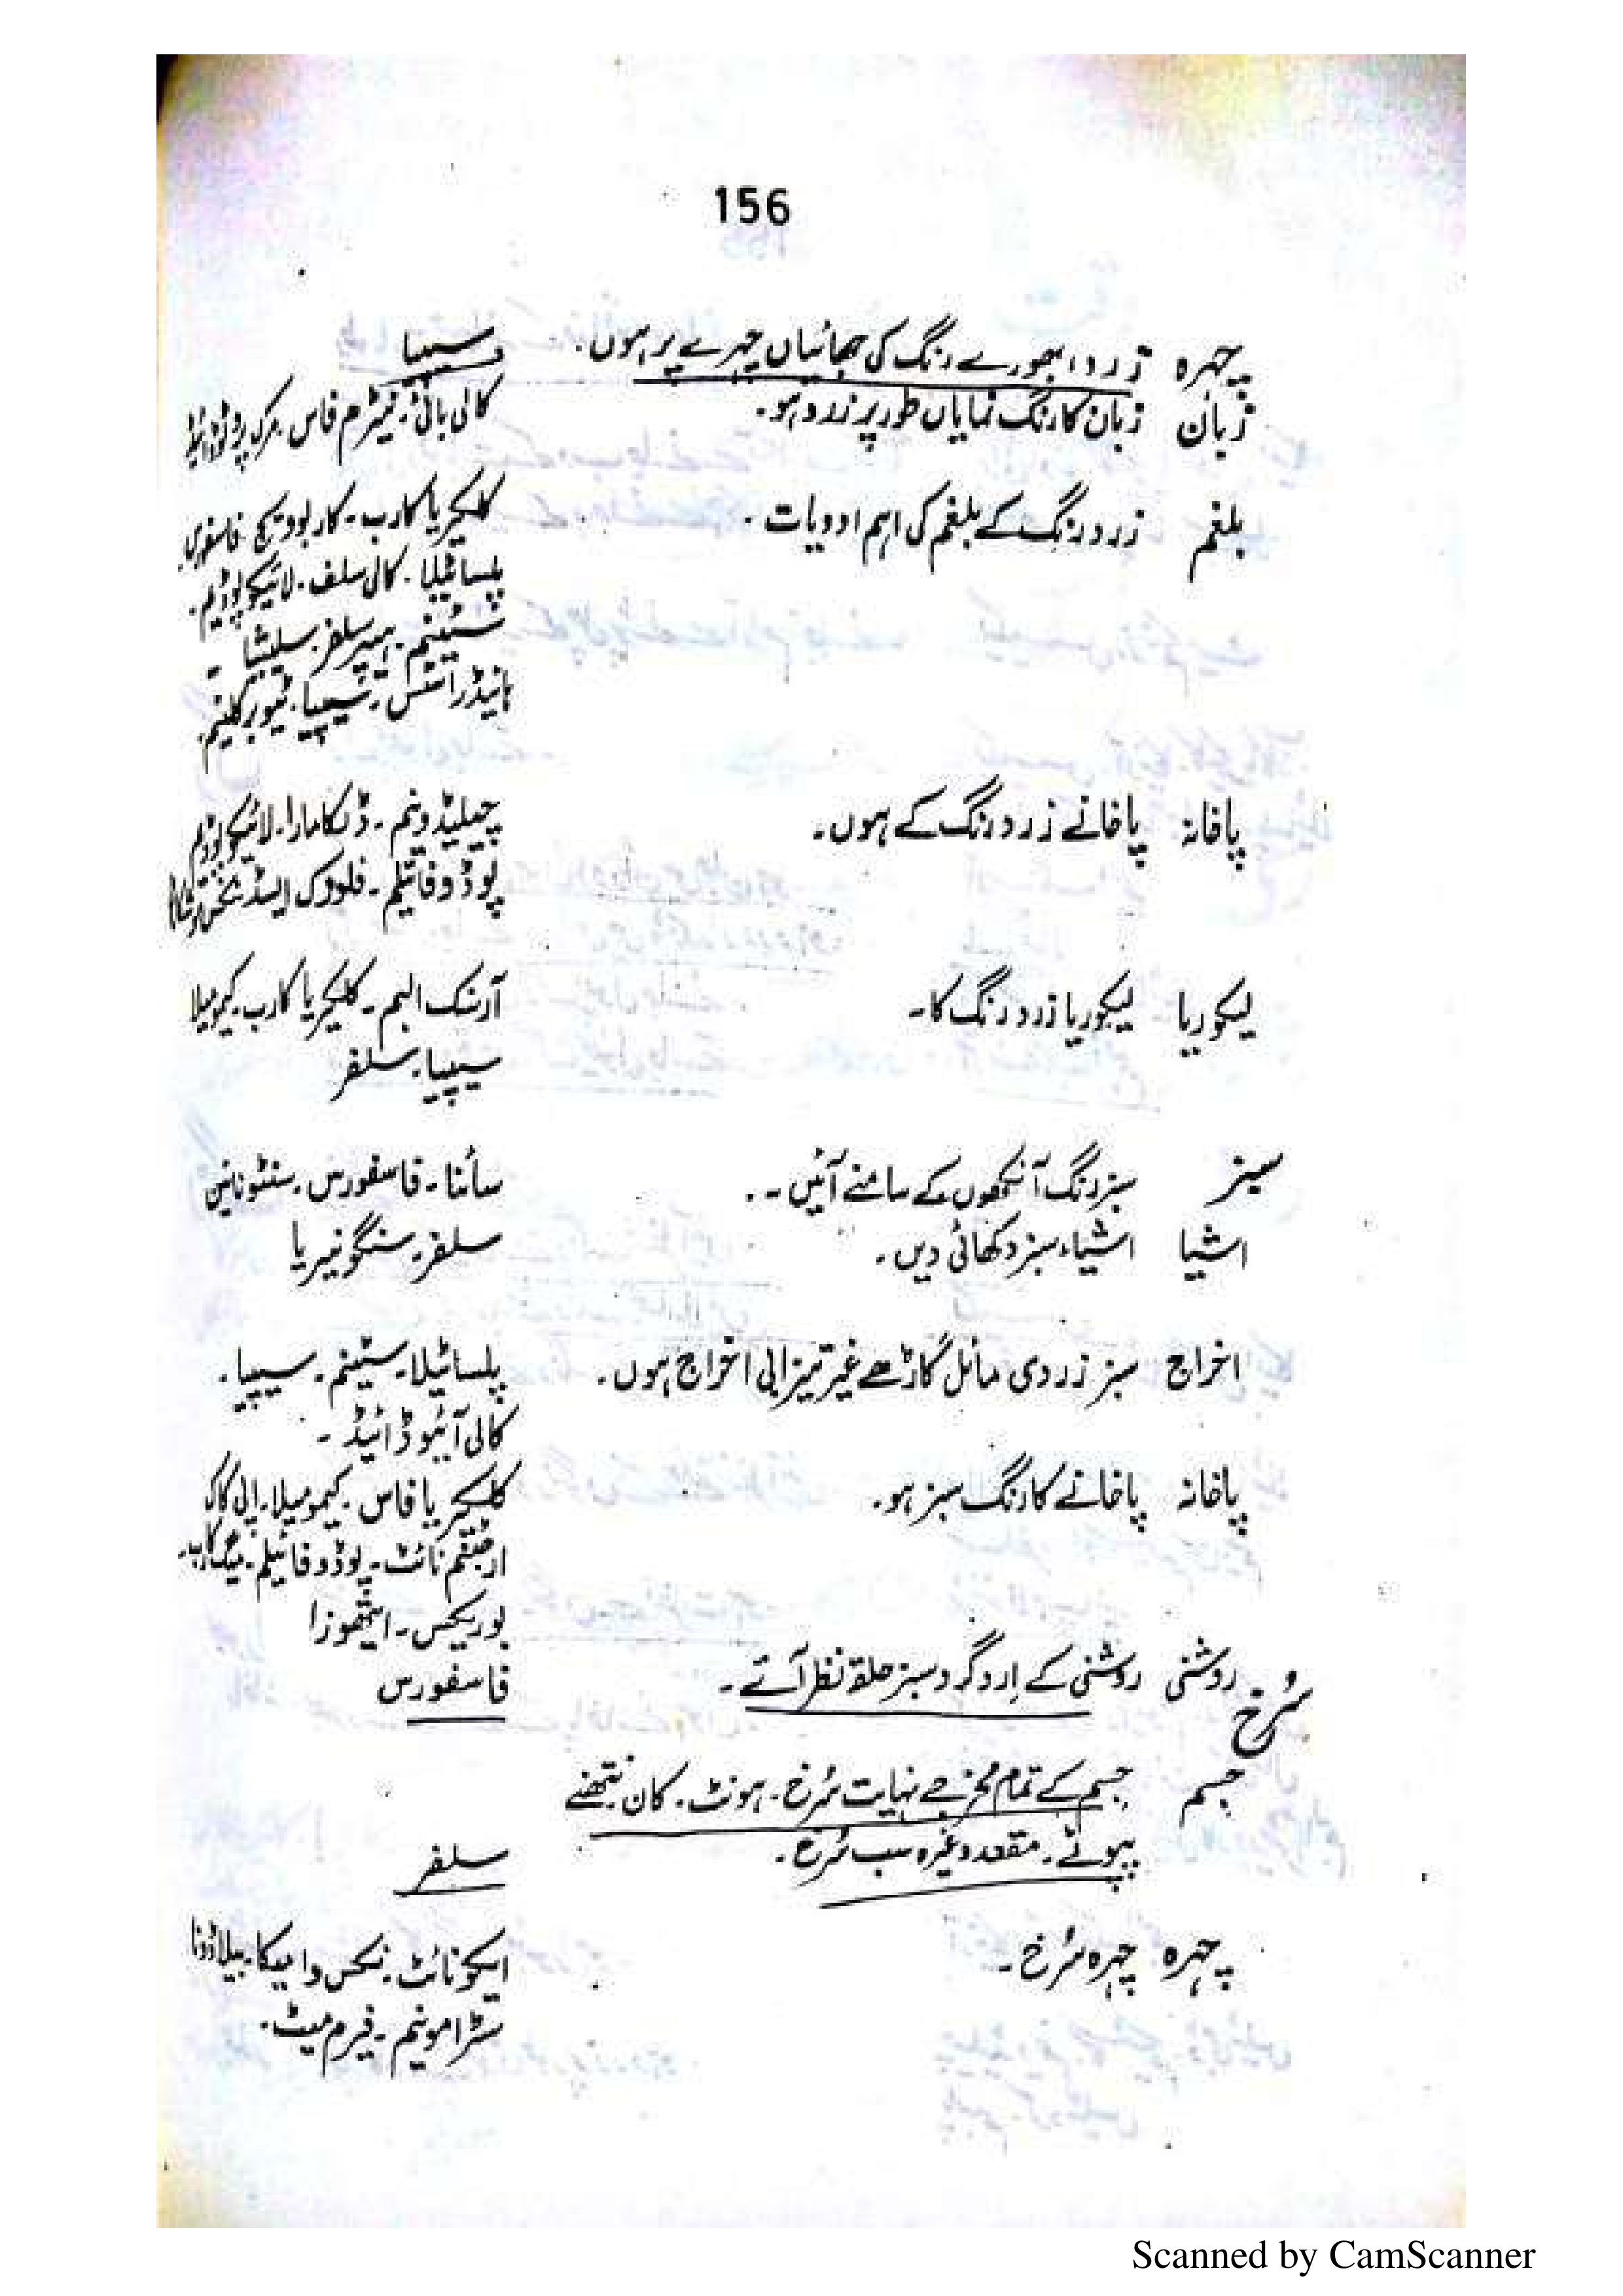 156
چہرہ زرد، بھورے رنگ کی جھائیاں چہرے پر ہوں۔ سیپیا
زبان زبان کا رنگ نمایاں طور پر زرد ہو۔ کالی بائی۔ نیٹرم فاس۔ مرک پروٹو آئیوڈ
بلغم زرد رنگ کے بلغم کی اہم ادویات۔ کلکیریا کارب۔ کاربوویج۔ فاسفورس
پلساٹیلا۔ کالی سلف۔ لائیکوپوڈیم۔
سٹینم۔ ہیپر سلفر۔ سلیشیا۔
ہائیڈراسٹس۔ سیپیا۔ ٹیوبرکلینم۔
پاخانہ پاخانے زرد رنگ کے ہوں۔ چیلیڈونیم۔ ڈلکامارا۔ لائیکوپوڈیم
پوڈوفائیلم۔ فلورک ایسڈ
لیکوریا لیکوریا زرد رنگ کا۔ آرسنک البم۔ کلکیریا کارب۔ کیمومیلا
سیپیا۔ سلفر
سبز سبز رنگ آنکھوں کے سامنے آئیں۔ سائنا۔ فاسفورس۔ سنٹونائین
اشیا اشیاء سبز دکھائی دیں۔ سلفر۔ سنگونیریا
اخراج سبز زردی مائل گاڑھے غیر تیزابی اخراج ہوں۔ پلساٹیلا۔ سٹینم۔ سیپیا۔
کالی آئیوڈائیڈ۔
پاخانہ پاخانے کا رنگ سبز ہو۔ کلکیریا فاس۔ کیمومیلا۔ اپی کاک
ارجنٹم نائٹ۔ پوڈوفائیلم۔ میگ کارب۔
بوریکس۔ ایتھوزا
روشنی روشنی کے اِرد گرد سبز حلقہ نظر آتے۔ فاسفورس
سُرخ
جسم جسم کے تمام مخرجے نہایت سُرخ۔ ہونٹ۔ کان۔ نتھنے
پپوٹے۔ مقعد وغیرہ سب سُرخ۔ سلفر
چہرہ چہرہ سُرخ۔ ایکونائٹ۔ نکس وامیکا۔ بیلاڈونا
سٹرامونیم۔ فیرم میٹ۔
Scanned by CamScanner